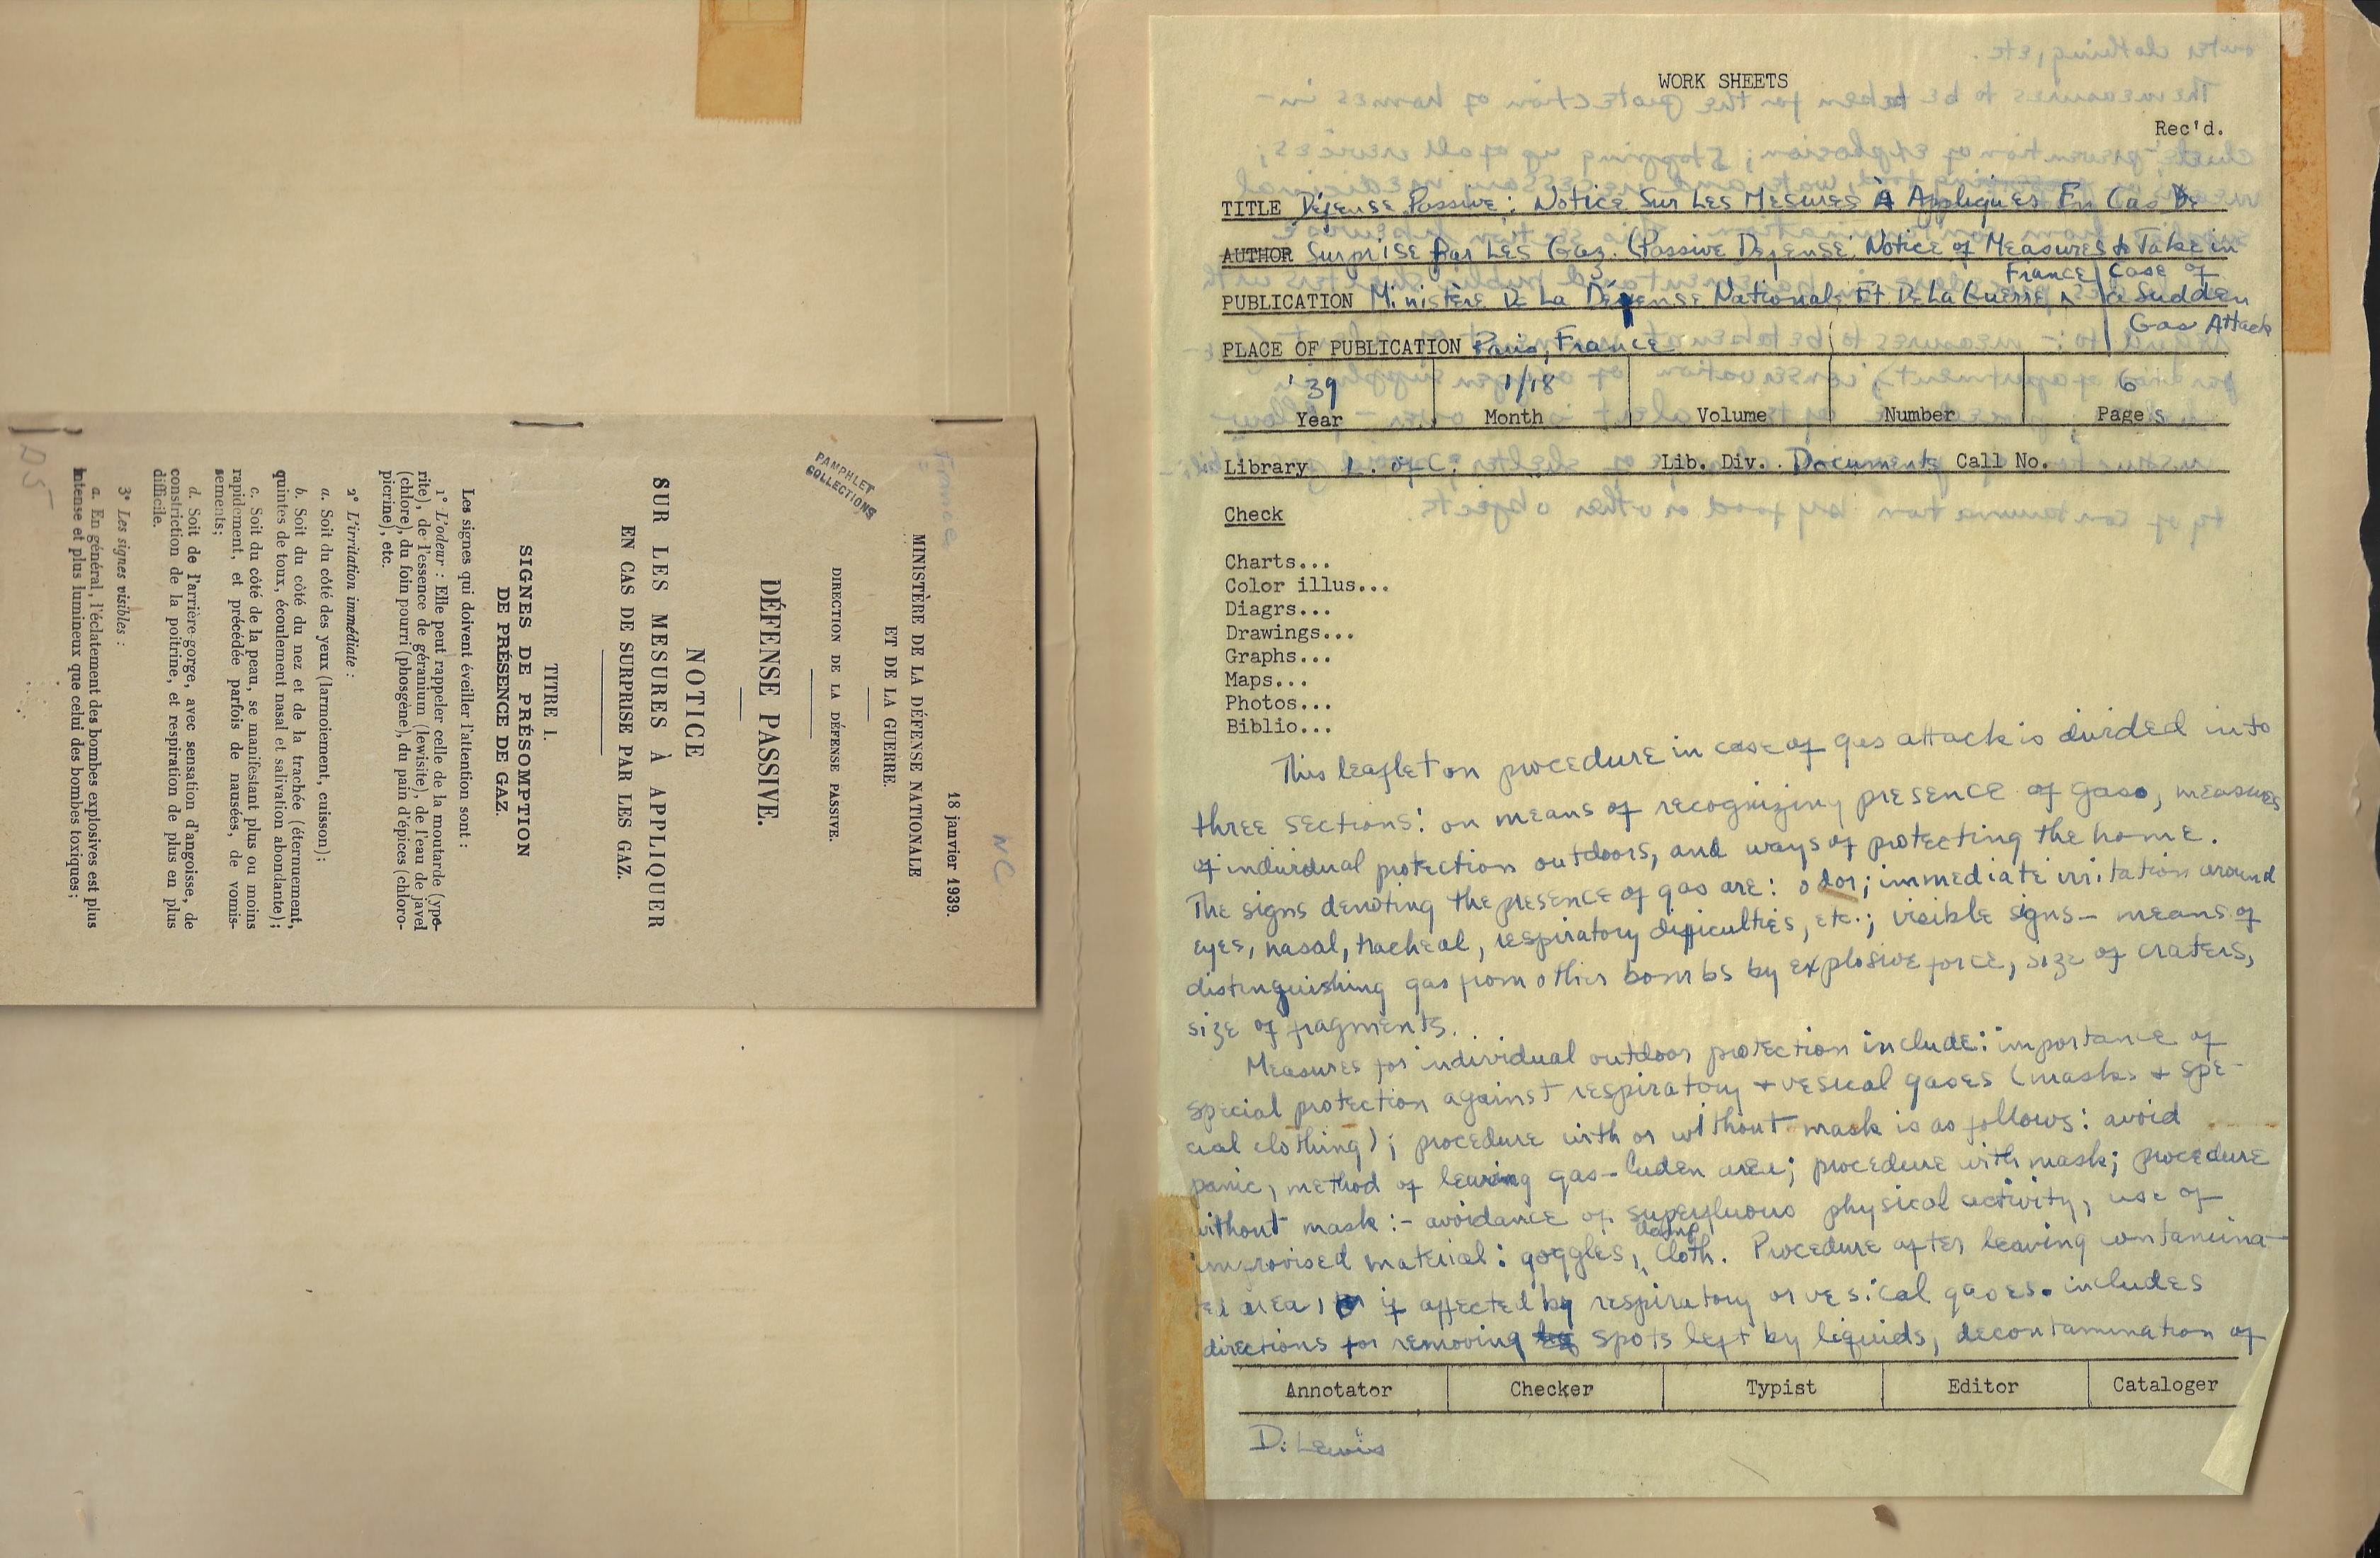 France
NC
18 janvier 1939.
MINISTÈRE DE LA DÉFENSE NATIONALE
ET DE LA GUERRE.
DIRECTION DE LA DÉFENSE PASSIVE.
PAMPHLET
COLLECTIONS
DÉFENSE PASSIVE.
NOTICE
SUR LES MESURES À APPLIQUER
EN CAS DE SURPRISE PAR LES GAZ.
TITRE I.
SIGNES DE PRÉSOMPTION
DE PRÉSENCE DE GAZ.
Les signes qui doivent éveiller l'attention sont :
1° L'odeur : Elle peut rappeler celle de la moutarde (ypé-
rite), de l'essence de géranium (lewisite), de l'eau de javel
(chlore), du foin pourri (phosgène), du pain d'épices (chloro-
picrine), etc.
2° L'irritation immédiate :
a. Soit du côté des yeux (larmoiement, cuisson);
b. Soit du côté du nez et de la trachée (éternuement,
quintes de toux, écoulement nasal et salivation abondante);
c. Soit du côté de la peau, se manifestant plus ou moins
rapidement, et précédée parfois de nausées, de vomis-
sements;
d. Soit de l'arrière-gorge, avec sensation d'angoisse, de
constriction de la poitrine, et respiration de plus en plus
difficile.
3° Les signes visibles :
a. En général, l'éclatement des bombes explosives est plus
intense et plus lumineux que celui des bombes toxiques;
WORK SHEETS
Rec'd.
TITLE Défense Passive: Notice Sur Les Mesures À Appliques En Cas De
AUTHOR Surprise Par Les Gaz. (Passive Defense: Notice of Measures to Take in
France Case of
PUBLICATION Ministère De La Défense Nationale Et De La Guerre, a Sudden
Gas Attack
PLACE OF PUBLICATION Paris, France
'39 1/18 6
Year Month Volume Number Pages
Library L. of C. Lib. Div. Documents Call No.
Check
Charts...
Color illus...
Diagrs...
Drawings...
Graphs...
Maps...
Photos...
Biblio...
This leaflet on procedure in case of gas attack is divided into
three sections: on means of recognizing presence of gas, measures
of individual protection outdoors, and ways of protecting the home.
The signs denoting the presence of gas are: odor; immediate irritation around
eyes, nasal, tracheal, respiratory difficulties, etc.; visible signs – means of
distinguishing gas from other bombs by explosive force, size of craters,
size of fragments.
Measures for individual outdoor protection include: importance of
special protection against respiratory + vesical gases (masks + spe-
cial clothing); procedure with or without mask is as follows: avoid
panic, method of leaving gas-laden area; procedure with mask; procedure
without mask :- avoidance of superfluous physical activity, use of
improvised material: goggles, damp cloth. Procedure after leaving contamina-
ted area, if affected by respiratory or vesical gases. includes
directions for removing spots left by liquids, decontamination of
Annotator Checker Typist Editor Cataloger
D. Lewis